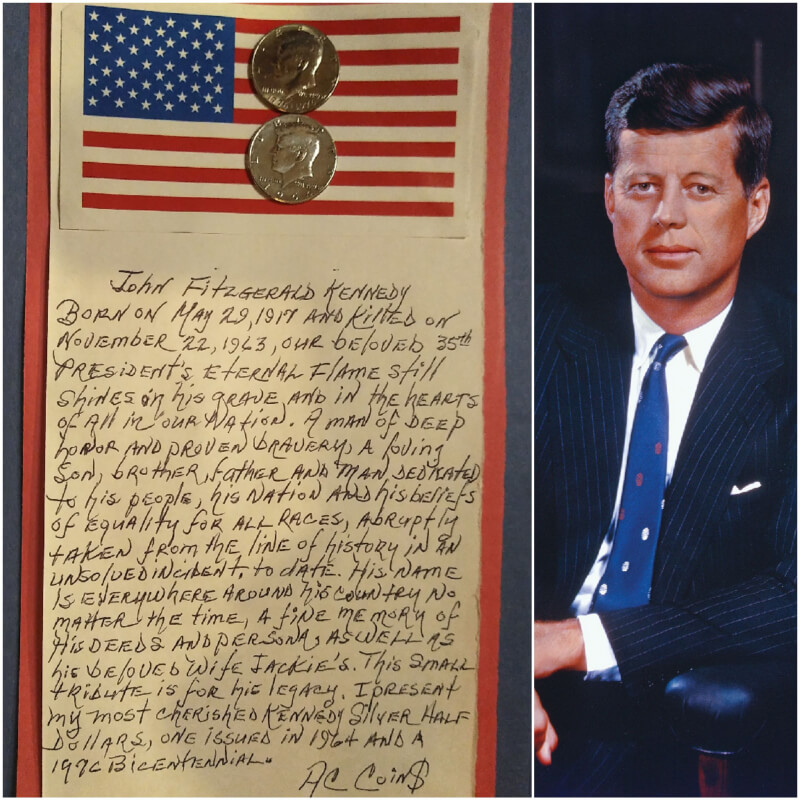 John Fitzgerald Kennedy
Born on May 29, 1917 and killed on
November 22, 1963, our beloved 35th
President's eternal flame still
shines on his grave and in the hearts
of all in our nation. A man of deep
honor and proven bravery, a loving
son, brother, father and man dedicated
to his people, his nation and his beliefs
of equality for all races, abruptly
taken from the line of history in an
unsolved incident, to date. His name
is everywhere around his country no
matter the time, a fine memory of
his deeds and persona, as well as
his beloved wife Jackie's. This small
tribute is for his legacy. I present
my most cherished Kennedy silver half
dollars, one issued in 1964 and a
1976 Bicentennial.
AC Coin$